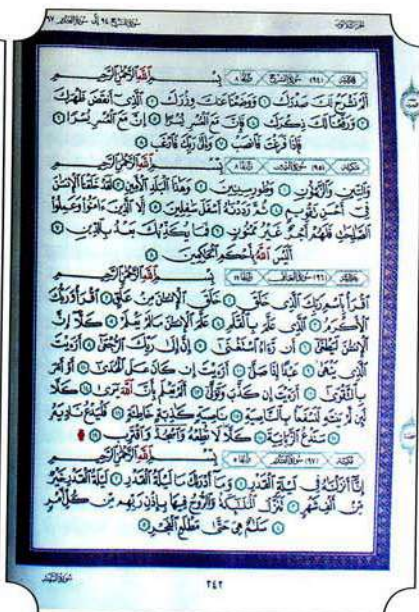 الجزء الثلاثون
سورة الشرح ٩٤ إلى سورة القدر ٩٧
مكية (٩٤) سورة الشرح آياتها ٨ بِسْمِ اللَّهِ الرَّحْمَٰنِ الرَّحِيمِ
أَلَمْ نَشْرَحْ لَكَ صَدْرَكَ ١ وَوَضَعْنَا عَنكَ وِزْرَكَ ٢ الَّذِي أَنقَضَ ظَهْرَكَ
٣ وَرَفَعْنَا لَكَ ذِكْرَكَ ٤ فَإِنَّ مَعَ الْعُسْرِ يُسْرًا ٥ إِنَّ مَعَ الْعُسْرِ يُسْرًا ٦
فَإِذَا فَرَغْتَ فَانصَبْ ٧ وَإِلَىٰ رَبِّكَ فَارْغَب ٨
مكية (٩٥) سورة التين آياتها ٨ بِسْمِ اللَّهِ الرَّحْمَٰنِ الرَّحِيمِ
وَالتِّينِ وَالزَّيْتُونِ ١ وَطُورِ سِينِينَ ٢ وَهَٰذَا الْبَلَدِ الْأَمِينِ ٣ لَقَدْ خَلَقْنَا الْإِنسَانَ
فِي أَحْسَنِ تَقْوِيمٍ ٤ ثُمَّ رَدَدْنَاهُ أَسْفَلَ سَافِلِينَ ٥ إِلَّا الَّذِينَ ءَامَنُوا وَعَمِلُوا
الصَّالِحَاتِ فَلَهُمْ أَجْرٌ غَيْرُ مَمْنُونٍ ٦ فَمَا يُكَذِّبُكَ بَعْدُ بِالدِّينِ ٧
أَلَيْسَ اللَّهُ بِأَحْكَمِ الْحَاكِمِينَ ٨
مكية (٩٦) سورة العلق آياتها ١٩ بِسْمِ اللَّهِ الرَّحْمَٰنِ الرَّحِيمِ
اقْرَأْ بِاسْمِ رَبِّكَ الَّذِي خَلَقَ ١ خَلَقَ الْإِنسَانَ مِنْ عَلَقٍ ٢ اقْرَأْ وَرَبُّكَ
الْأَكْرَمُ ٣ الَّذِي عَلَّمَ بِالْقَلَمِ ٤ عَلَّمَ الْإِنسَانَ مَا لَمْ يَعْلَمْ ٥ كَلَّا إِنَّ
الْإِنسَانَ لَيَطْغَىٰ ٦ أَن رَّءَاهُ اسْتَغْنَىٰ ٧ إِنَّ إِلَىٰ رَبِّكَ الرُّجْعَىٰ ٨ أَرَءَيْتَ
الَّذِي يَنْهَىٰ ٩ عَبْدًا إِذَا صَلَّىٰ ١٠ أَرَءَيْتَ إِن كَانَ عَلَى الْهُدَىٰ ١١ أَوْ أَمَرَ
بِالتَّقْوَىٰ ١٢ أَرَءَيْتَ إِن كَذَّبَ وَتَوَلَّىٰ ١٣ أَلَمْ يَعْلَم بِأَنَّ اللَّهَ يَرَىٰ ١٤ كَلَّا
لَئِن لَّمْ يَنتَهِ لَنَسْفَعًا بِالنَّاصِيَةِ ١٥ نَاصِيَةٍ كَاذِبَةٍ خَاطِئَةٍ ١٦ فَلْيَدْعُ نَادِيَهُ
١٧ سَنَدْعُ الزَّبَانِيَةَ ١٨ كَلَّا لَا تُطِعْهُ وَاسْجُدْ وَاقْتَرِب ۩ ١٩
مكية (٩٧) سورة القدر آياتها ٥ بِسْمِ اللَّهِ الرَّحْمَٰنِ الرَّحِيمِ
إِنَّا أَنزَلْنَاهُ فِي لَيْلَةِ الْقَدْرِ ١ وَمَا أَدْرَاكَ مَا لَيْلَةُ الْقَدْرِ ٢ لَيْلَةُ الْقَدْرِ خَيْرٌ
مِّنْ أَلْفِ شَهْرٍ ٣ تَنَزَّلُ الْمَلَائِكَةُ وَالرُّوحُ فِيهَا بِإِذْنِ رَبِّهِم مِّن كُلِّ أَمْرٍ
٤ سَلَامٌ هِيَ حَتَّىٰ مَطْلَعِ الْفَجْرِ ٥
٢٤٢